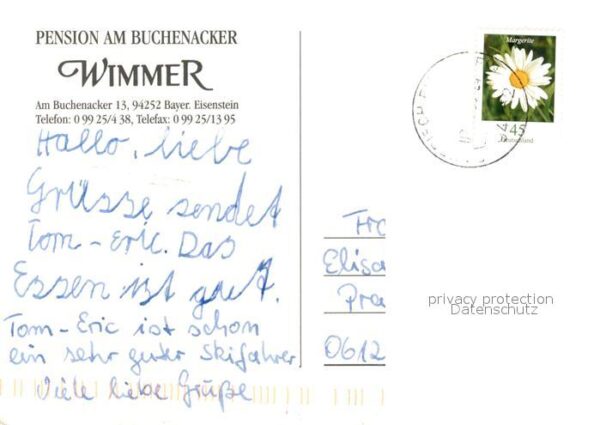 PENSION AM BUCHENACKER
WIMMER
Am Buchenacker 13, 94252 Bayer. Eisenstein
Telefon: 0 99 25/4 38, Telefax: 0 99 25/13 95
Hallo, liebe
Grüsse sendet
Tom-Eric. Das
Essen ist gut.
Tom-Eric ist schon
ein sehr guter Skifahrer
Viele liebe Grüße
Margerite
45
Deutschland
Elisa
Pra
0612
privacy protection
Datenschutz